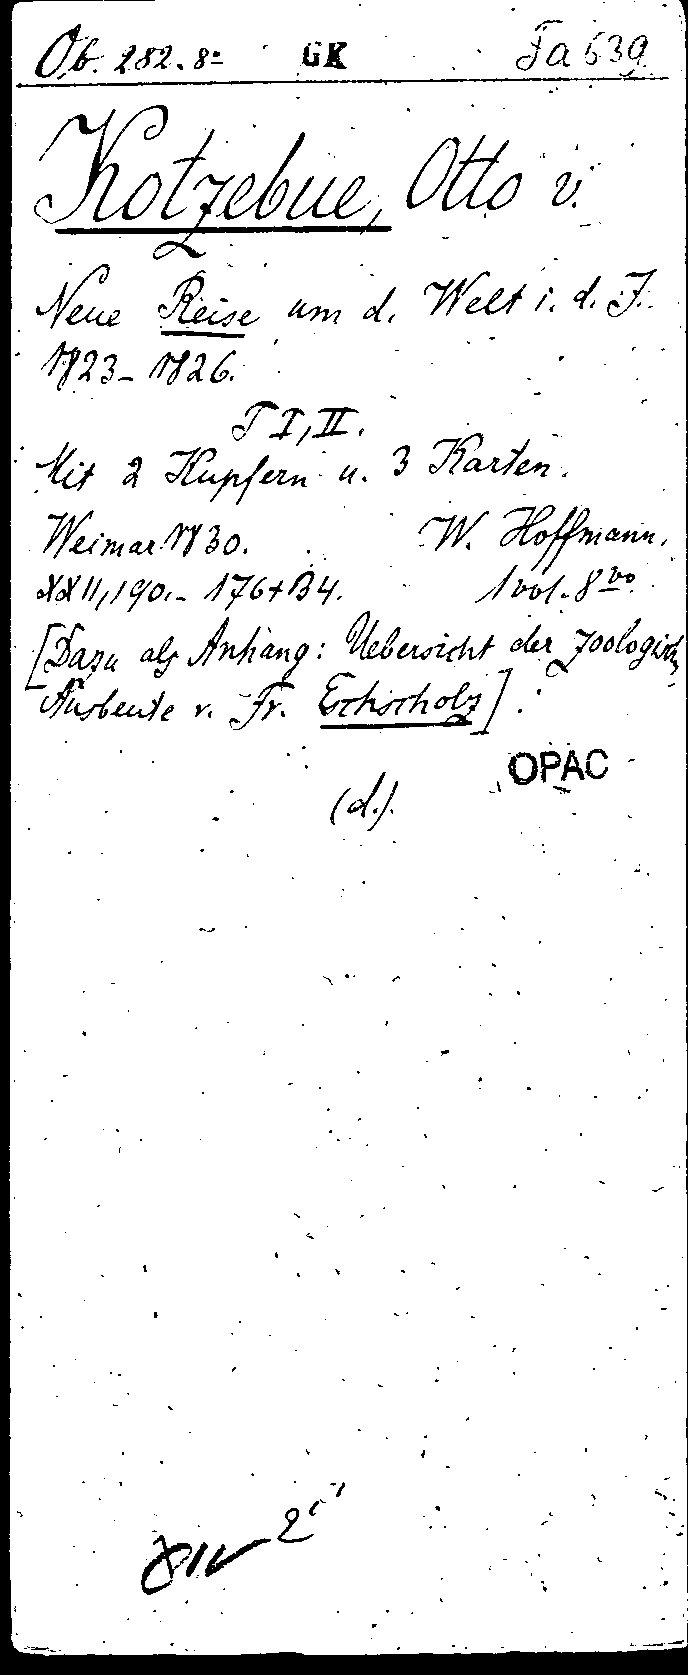 Ob. 282. 8° GK Fa 639
Kotzebue, Otto v.
Neue Reise um d. Welt i. d. J.
1823-1826.
T I, II.
Mit 2 Kupfern u. 3 Karten.
Weimar 1830. W. Hoffmann.
XXII, 190.- 176+34. 1 vol. 8vo.
[Dazu als Anhang: Uebersicht der zoologisch.
Ausbeute v. Fr. Eschscholz].
OPAC
(d.)